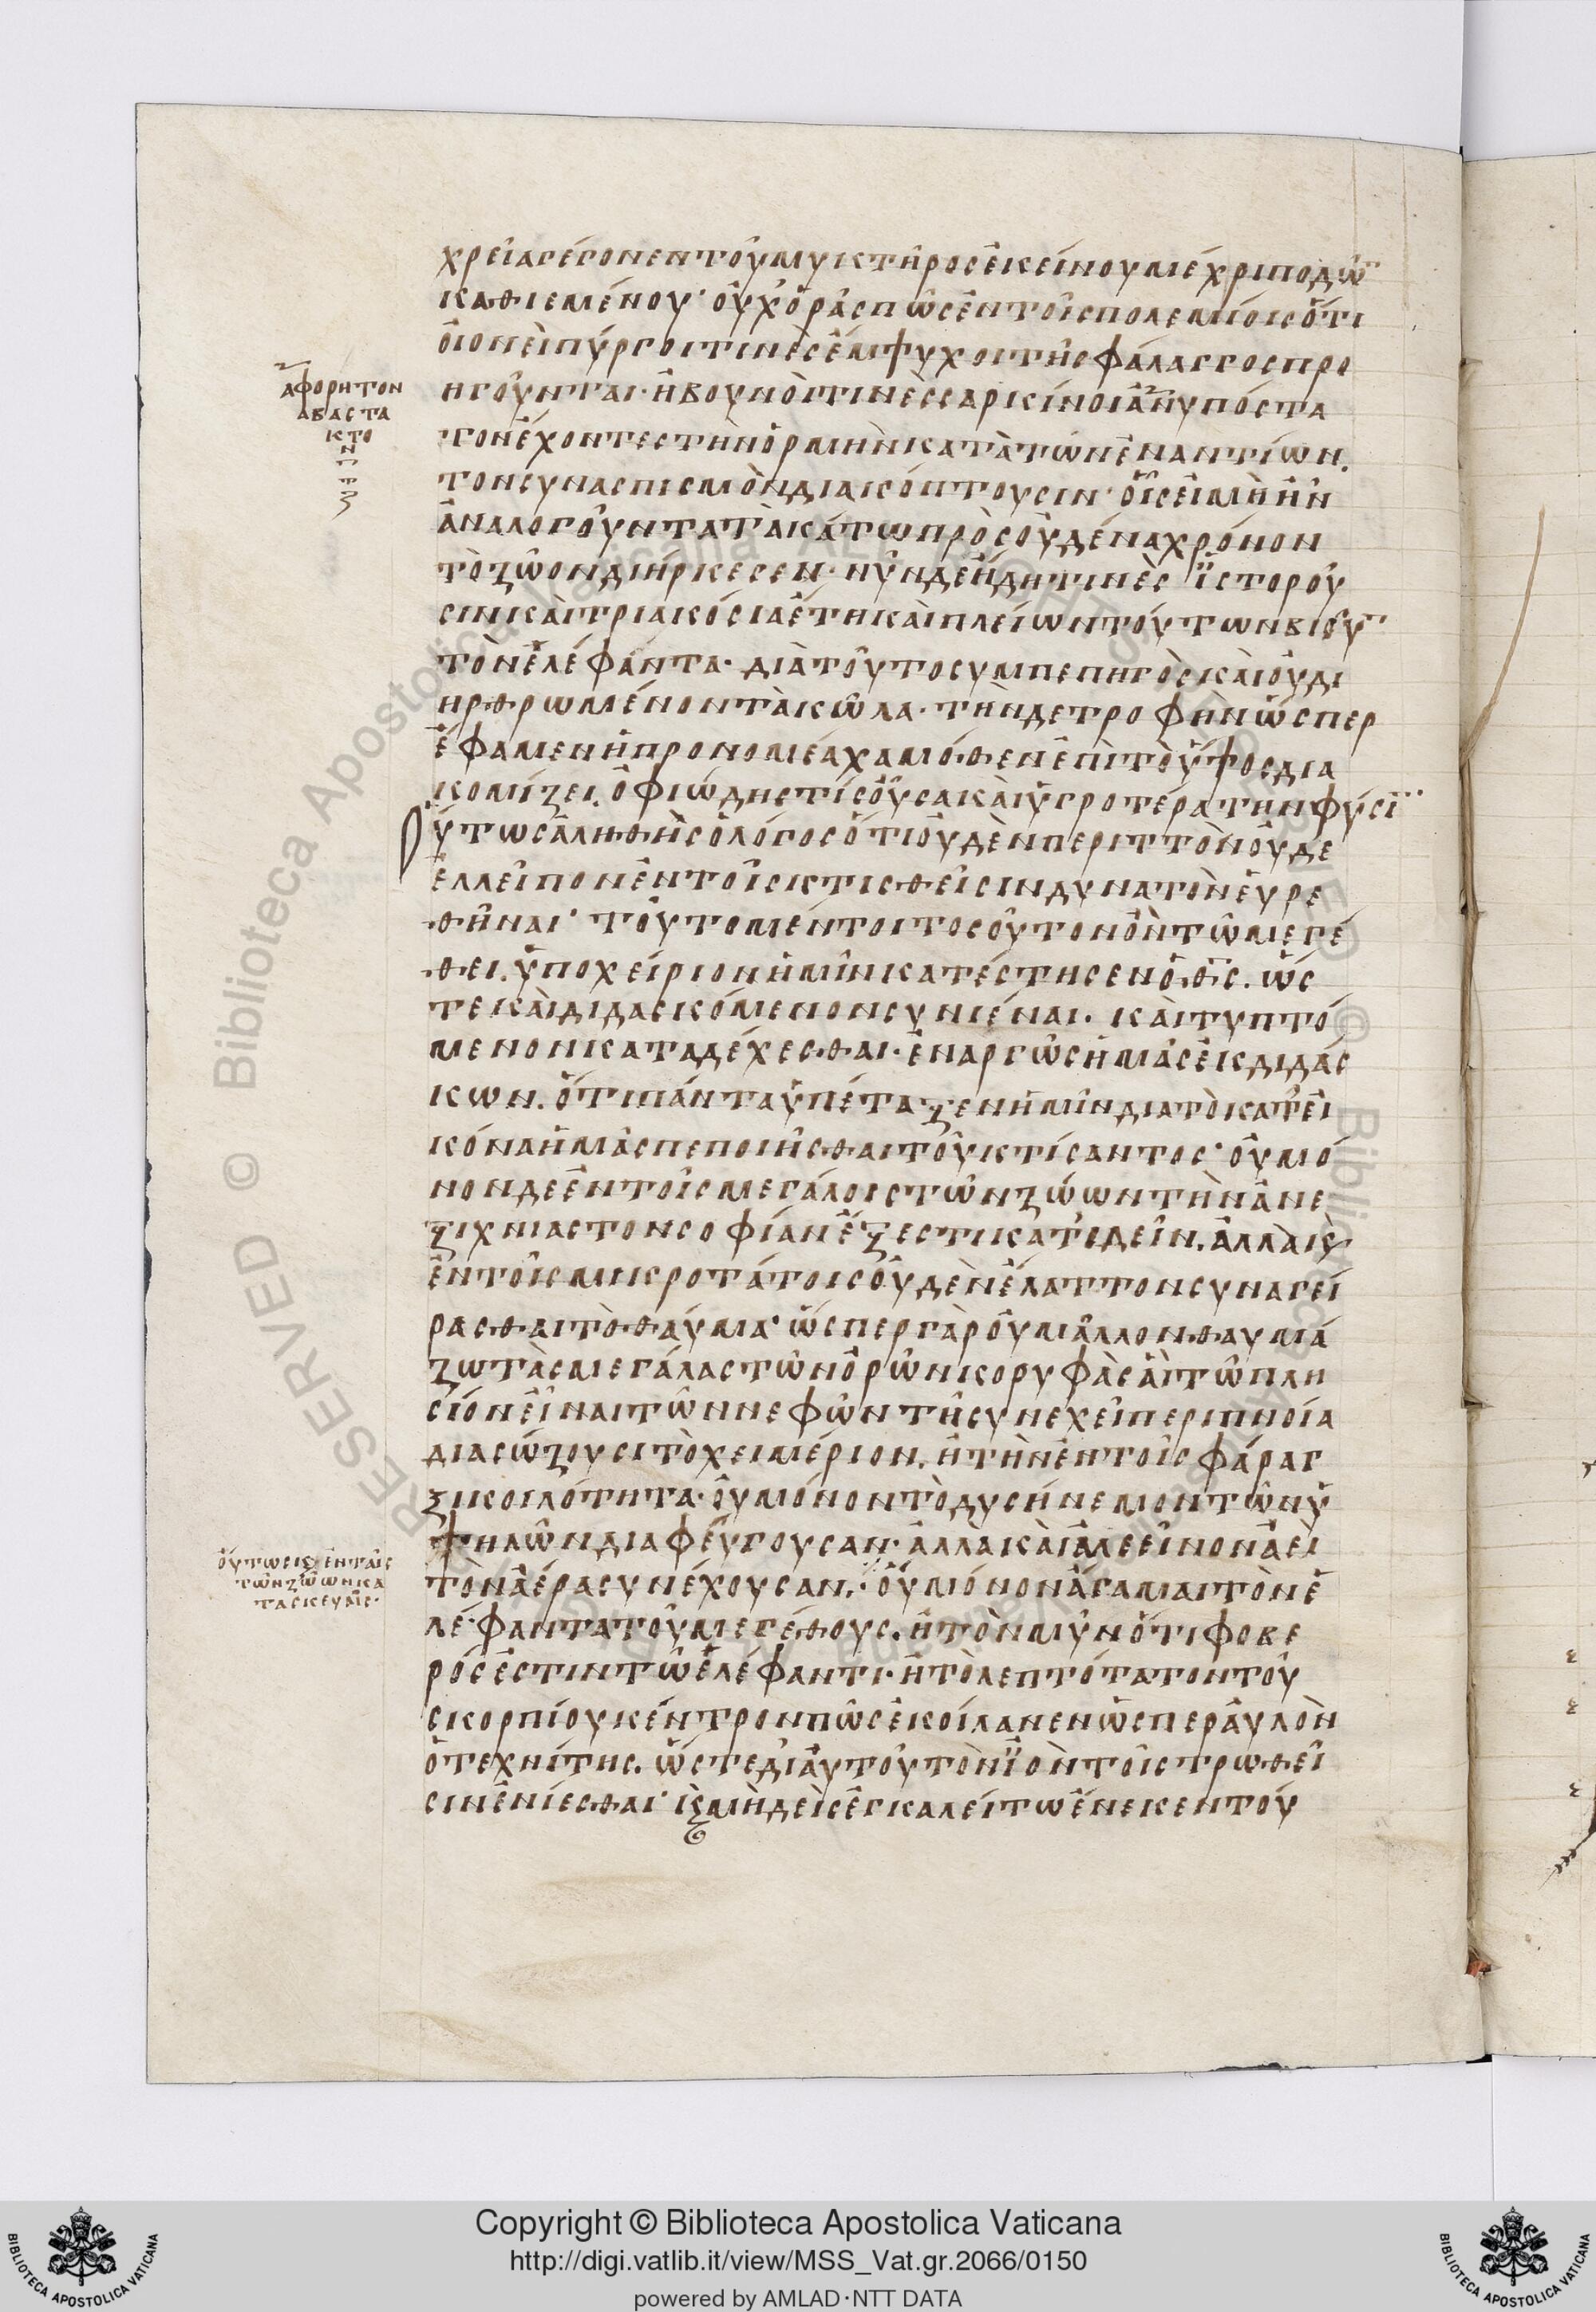 χρείας γέγονεν τοῦ μυκτῆρος ἐκείνου μέχρι ποδῶ
καθιεμένου· οὐχ ὁρᾶς πῶς ἐν τοῖς πολεμίοις ὅτι
οἱονεὶ πύργοι τινὲς ἔμψυχοι τῆς φάλαγγος προ
ηγοῦνται· ἢ βουνοί τινὲς σαρκίνοι ἀνυπόστα
τον ἔχοντες τὴν ὁρμὴν κατὰ τῶν ἐναντίων.
τον συνασπισμὸν διακόπτουσιν· οἷς εἰ μὴ ἦν
ἀναλογοῦντα τὰ κάτω πρὸς οὐδένα χρόνον
τὸ ζῶον διήρκεσεν· νῦν δὲ ἤδη τινὲς ἱστοροῦ
σιν καὶ τριακόσια ἔτη καὶ πλείω ντούτων βιοῦ
τὸν ἐλέφαντα· διὰ τοῦτο συμπεπηγὸς καὶ οὐ δι
ηρθρωμένον τὰ κῶλα· τὴν δε τροφὴν ὥσπερ
ἔφαμεν ἡ προνομέα χαμόθεν ἐπὶ τὸ ὕψος δια
κομίζει. ὀφιώδης τίς οὖσα καὶ ὑγροτέρα την φύσι
Οὕτως ἀληθὴς ὁ λόγος ὅτι οὐδὲν περιττὸν οὐδε
ἐλλεῖπον ἐν τοῖς κτισθεῖσιν δυνατὸν εὑρε
θῆναι· τοῦτο μέντοι τοσοῦτον ὂν τῶ μεγέ
θει. ὑποχείριον ἡμῖν κατέστησεν ὁ θς. ὥς
τε καὶ διδασκόμενον συνιέναι. καὶ τυπτό
μενον καταδέχεσθαι· ἐναργῶς ἡμᾶς ἐκδιδάς
κων. ὅτι πάντα ὑπέταξεν ἡμῖν δια τὸ κατ' εἰ
κόνα ἡμᾶς πεποιῆσθαι τοῦ κτίσαντος· οὐ μό
νον δε ἐν τοῖς μεγάλοις τῶν ζώων τὴν ἀνε
ξιχνίαστον σοφίαν ἔξεστι κατιδεῖν. ἀλλὰ κ
ἐν τοῖς μικροτάτοις οὐδὲν ἔλαττον συναγεί
ρασθαι τὸ θαύμα· ὥσπερ γὰρ οὐ μᾶλλον θαυμά
ζω τὰς μεγάλας τῶν ὀρῶν κορυφὰς αἳ τῶ πλη
σίον εἶναι τῶν νεφῶν τῆ συνεχεῖ περιπνοία
διασώζουσι τὸ χειμέριον. ἢ τὴν ἐν τοῖς φάραγ
ξι κοιλότητα· οὐ μόνον τὸ δυσήνεμον τῶν ὑ
ψηλῶν διαφεύγουσαν· ἀλλὰ καὶ ἀλεεῖνον ἀεὶ
τὸν ἀέρα συνέχουσαν. οὐ μόνον ἄγαμαι τὸν ἐ
λέφαντα τοῦ μεγέθους. ἢ τὸν μῦν ὅτι φοβε
ρός ἐστιν τῶ ἐλέφαντι· ἢ τὸ λεπτότατον τοῦ
σκορπίου κέντρον πῶς ἐκοίλανεν ὥσπερ αὐλὸν
ὁ τεχνίτης. ὥστε δι' αὐτοῦ τὸν ἰὸν τοῖς τρωθεῖ
σιν ἐνίεσθαι· κ μὴδεὶς ἐγκαλείτω ἕνεκεν τού
ἀφορητον
ἀβαστα
κτο
ν
οὕτως κ ἐν ταῖς
τῶν ζώων κα
τασκευαῖς·
Copyright © Biblioteca Apostolica Vaticana
http://digi.vatlib.it/view/MSS_Vat.gr.2066/0150
powered by AMLAD·NTT DATA
BIBLIOTECA APOSTOLICA VATICANA
BIBLIOTECA APOSTOLICA VATICANA